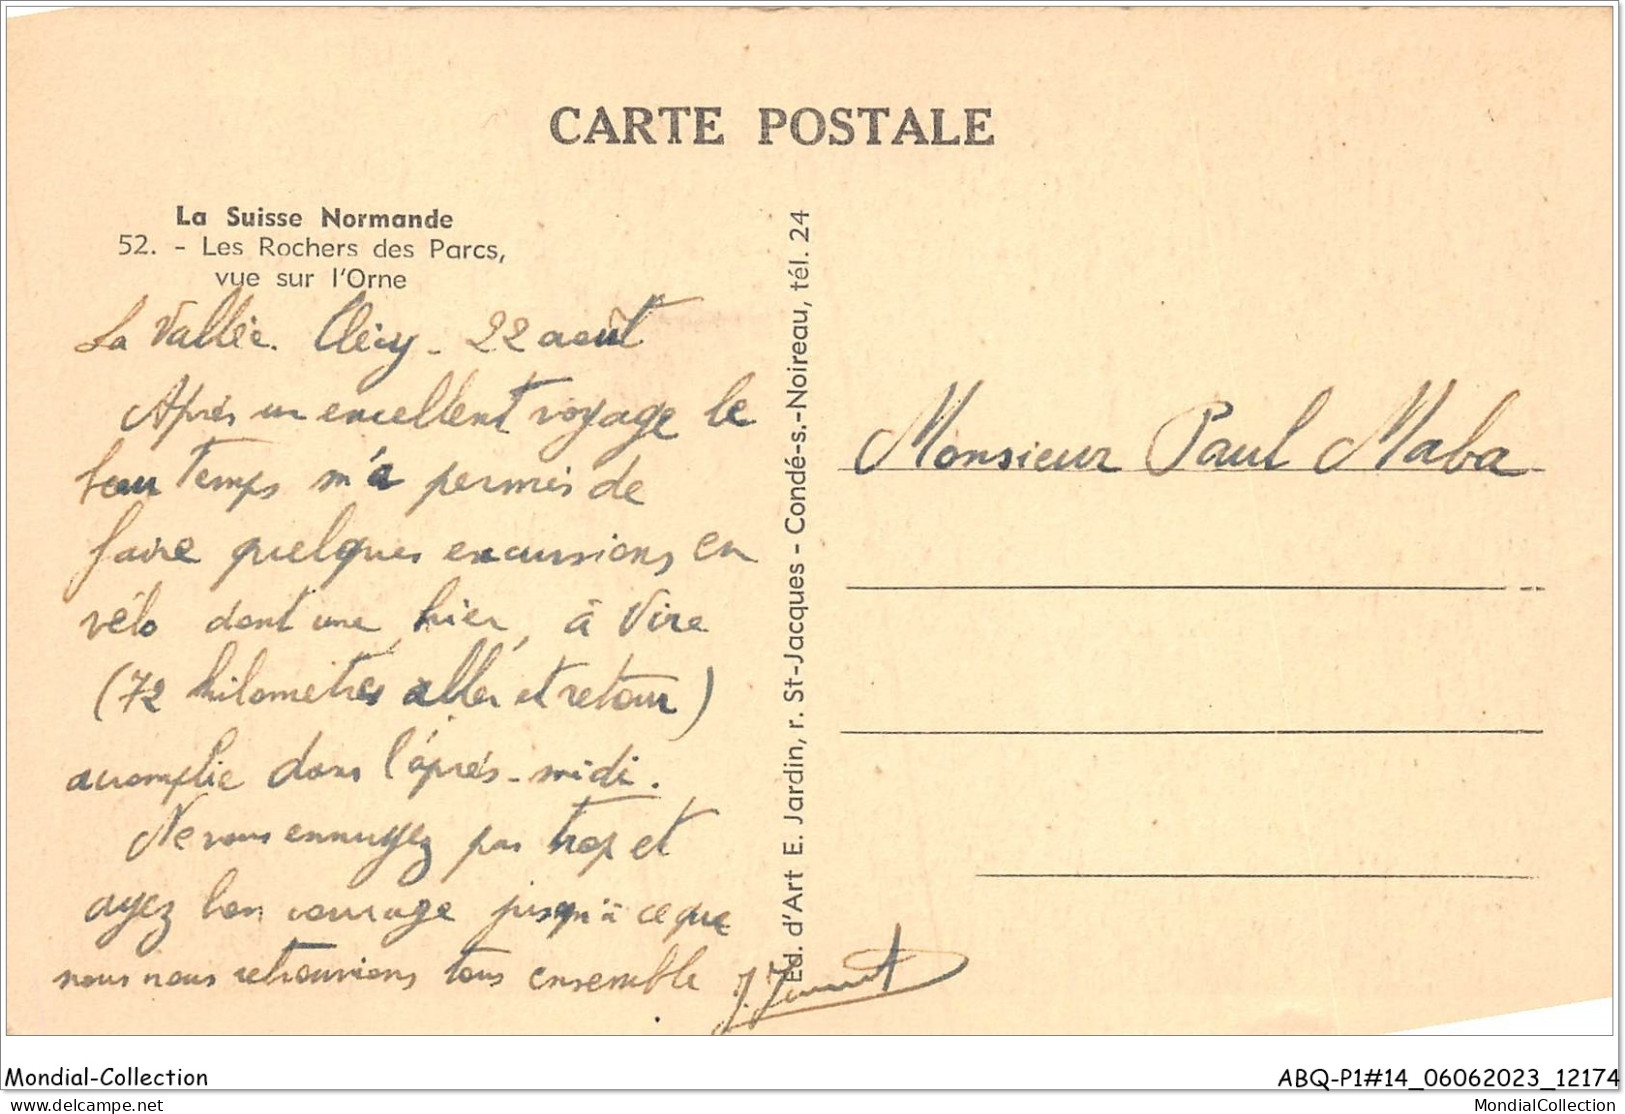 CARTE POSTALE
La Suisse Normande
52. - Les Rochers des Parcs,
vue sur l'Orne
La Vallée. Clécy - 22 août
Après un excellent voyage le
beau temps m'a permis de
faire quelques excursions en
vélo dont une, hier, à Vire
(72 kilomètres aller et retour)
accomplie dans l'après-midi.
Ne vous ennuyez pas trop et
ayez bon courage jusqu'à ce que
nous nous retrouvions tous ensemble
Ed. d'Art E. Jardin, r. St-Jacques - Condé-s.-Noireau, tél. 24
Monsieur Paul Maba
Mondial-Collection
ABQ-P1#14_06062023_12174
delcampe.net
MondialCollection